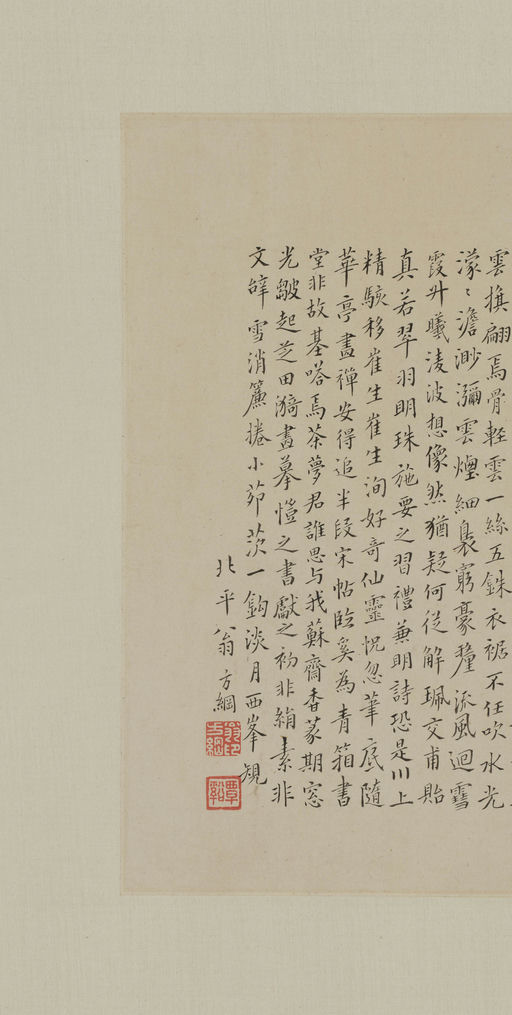 雲旗翩焉骨輕雲一絲五銖衣裾不任吹水光
濛〻澹渺瀰雲煙細裊窮豪釐流風迴雪
霞升曦淩波想像然猶疑何從解珮交甫貽
真若翠羽明珠施要之習禮兼明詩恐是川上
精駭移崔生崔生洵好奇仙靈怳忽筆底隨
華亭畫禪安得追半段宋帖臨奚為青箱書
堂非故基嗒焉茶夢君誰思与我蘇齋香篆期窓
光皺起芝田漪畫摹愷之書獻之初非絹素非
文辭雪消簾捲小茆茨一鈎淡月西峯規
北平翁方綱
翁方綱印
覃谿